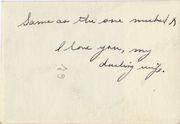 Same as the one marked A
I love you, my
darling wife.